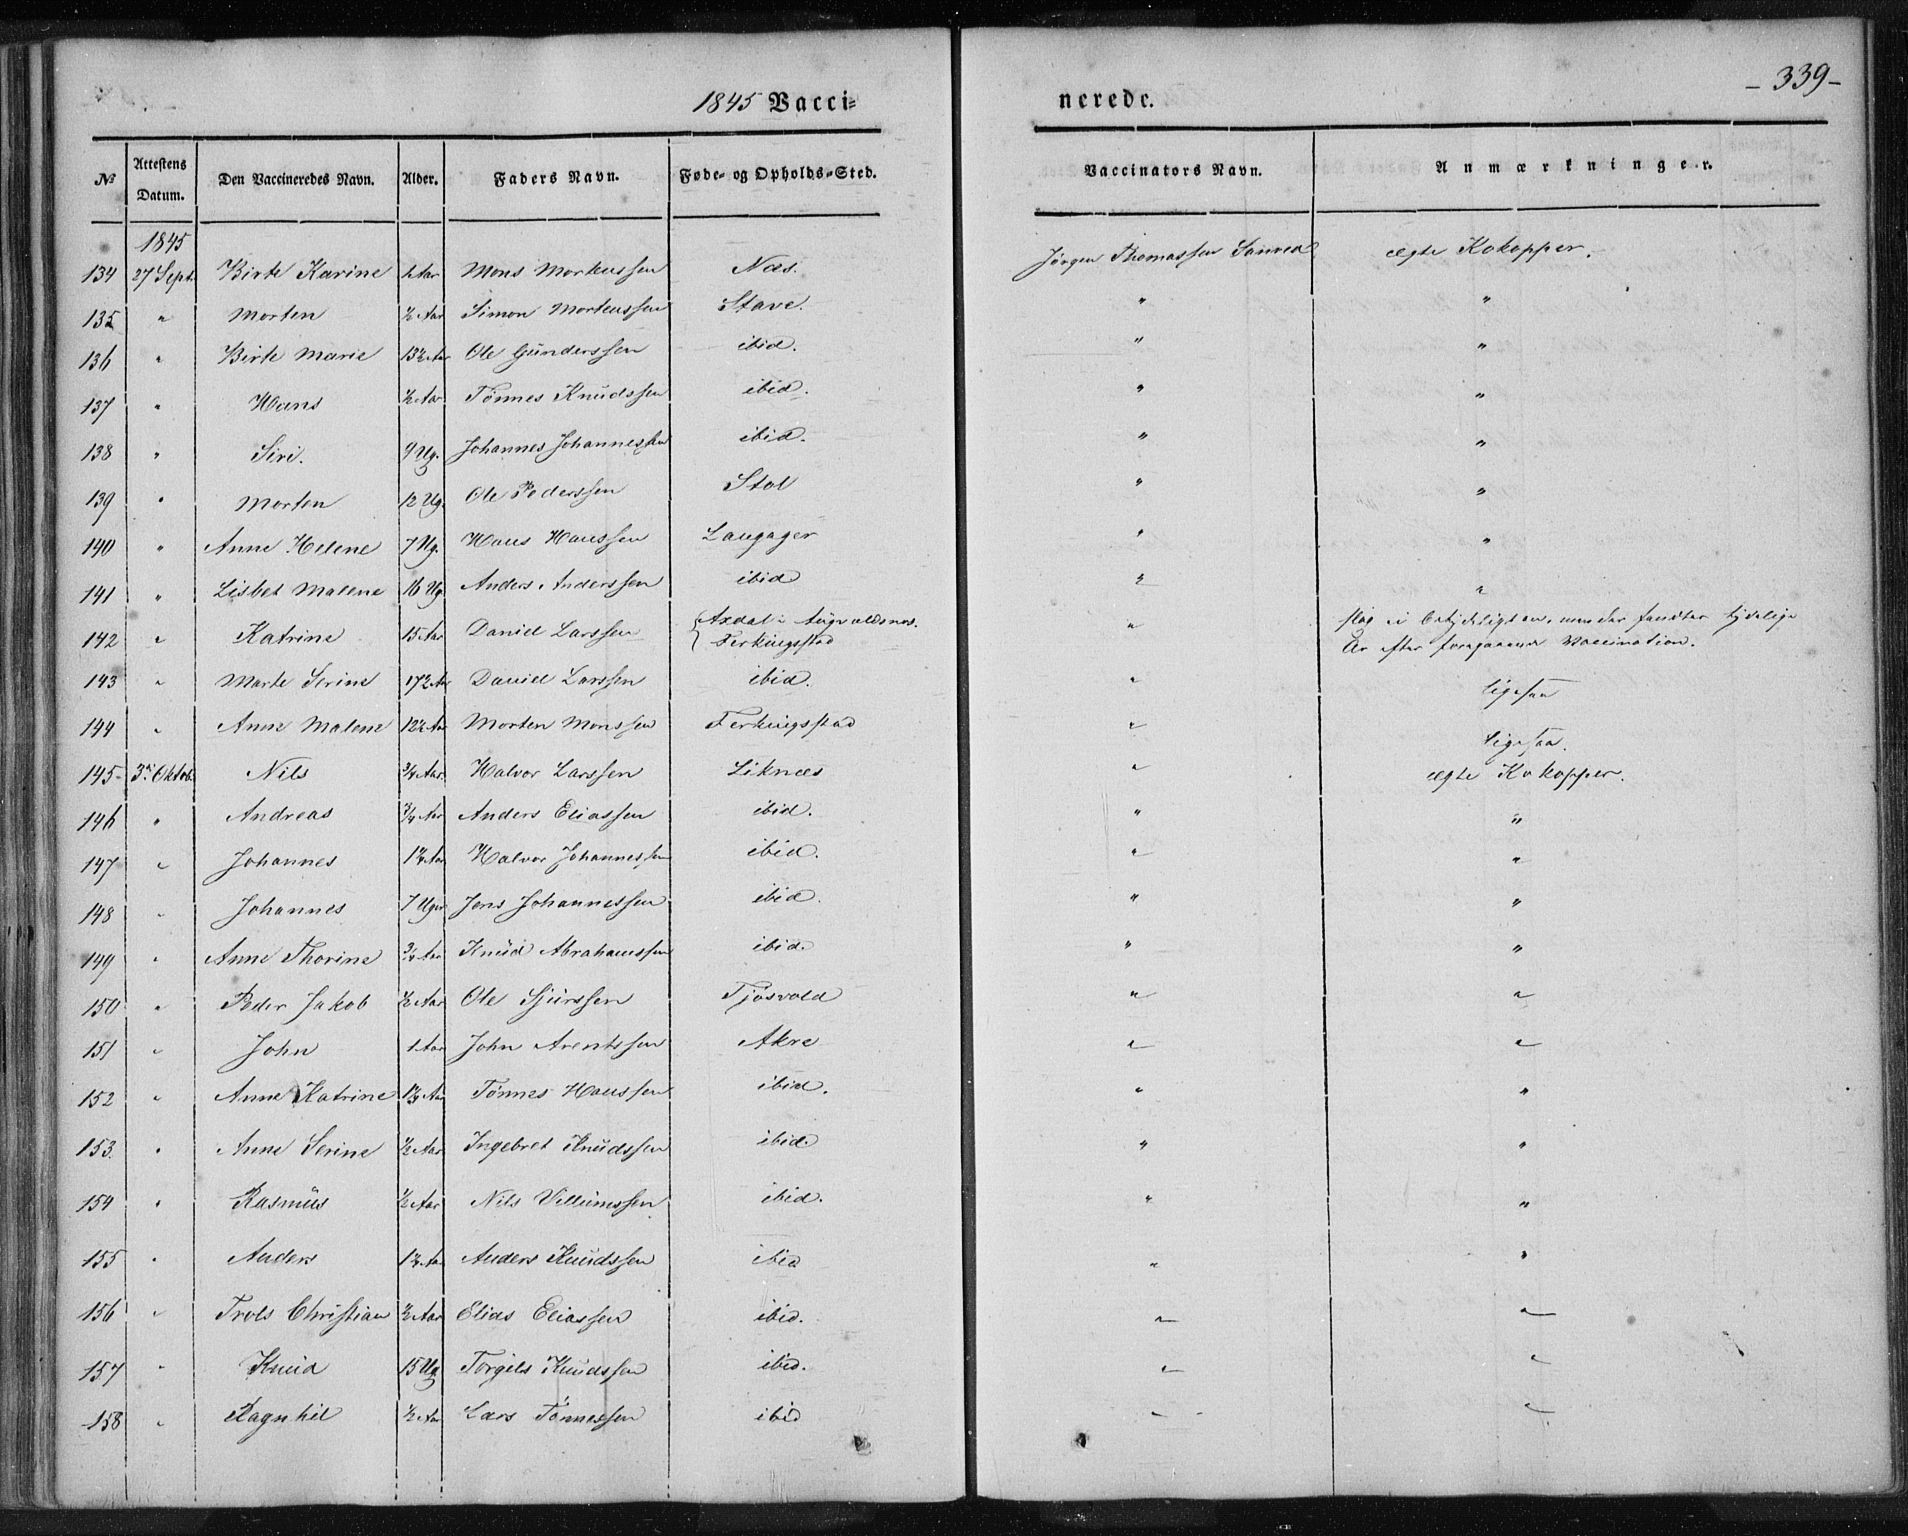 -339-
1845 Vacci= nerede.
No Attestens Datum. Den Vaccineredes Navn. Alder. Faders Navn. Føde- og Opholds-Sted. Vaccinators Navn. Anmærkninger.
1845
134 27 Sept. Birte Karine 1 Aar Mons Mortenssen Næs. Jørgen Thomassen ægte Kokopper.
135 " Morten ½ Aar Simon Mortenssen Stave. " "
136 " Birte Marie 13½ Aar Ole Gunderssen ibid. " "
137 " Hans ½ Aar Tönnes Knudssen ibid. " "
138 " Siri. 9 Ug. Johannes Johannessen ibid. " "
139 " Morten 12 Ug. Ole Pederssen Stol " "
140 " Anne Helene 7 Ug. Hans Hanssen Langager " "
141 " Lisbet Malene 16 Ug. Anders Anderssen ibid " "
142 " Katrine 15 Aar Daniel Larssen Axdal i Augvaldsnes. " slog ei betydeligt an, men der fandtes tydelige
Ferkingstad Ar efter foregaaende Vaccination.
143 " Marte Serine 17½ Aar Daniel Larssen ibid. " ligesaa
144 " Anne Malene 12½ Aar Morten Monssen Ferkingsstad " ligesaa.
145- 3di Oktob. Nils ¾ Aar. Halvor Larssen Liknæs " ægte Kokopper.
146 " Andreas ¾ Aar Anders Eliassen ibid. " "
147 " Johannes 1¼ Aar Halvor Johannessen ibid. " "
148 " Johannes 7 Uger Jens Johannessen ibid. " "
149 " Anne Thorine ¾ Aar Knud Abrahamssen ibid. " "
150 " Peder Jakob ½ Aar Ole Sjurssen Tjösvold " "
151 " John 1 Aar John Arentssen Akre " "
152 " Anne Katrine Aar Tönnes Hanssen ibid. " "
153. " Anne Serine ½ Aar Ingebret Knudssen ibid. " "
154 " Rasmus ½ Aar Nils Villumssen ibid. " "
155 " Anders 1¼ Aar Anders Knudssen ibid " "
156 " Trols Christian ½ Aar Elias Eliassen ibid. " "
157 " Knud 15 Ug Torgils Knudssen ibid. " "
158 " Ragnhil ½ Aar Lars Tönnessen ibid " "